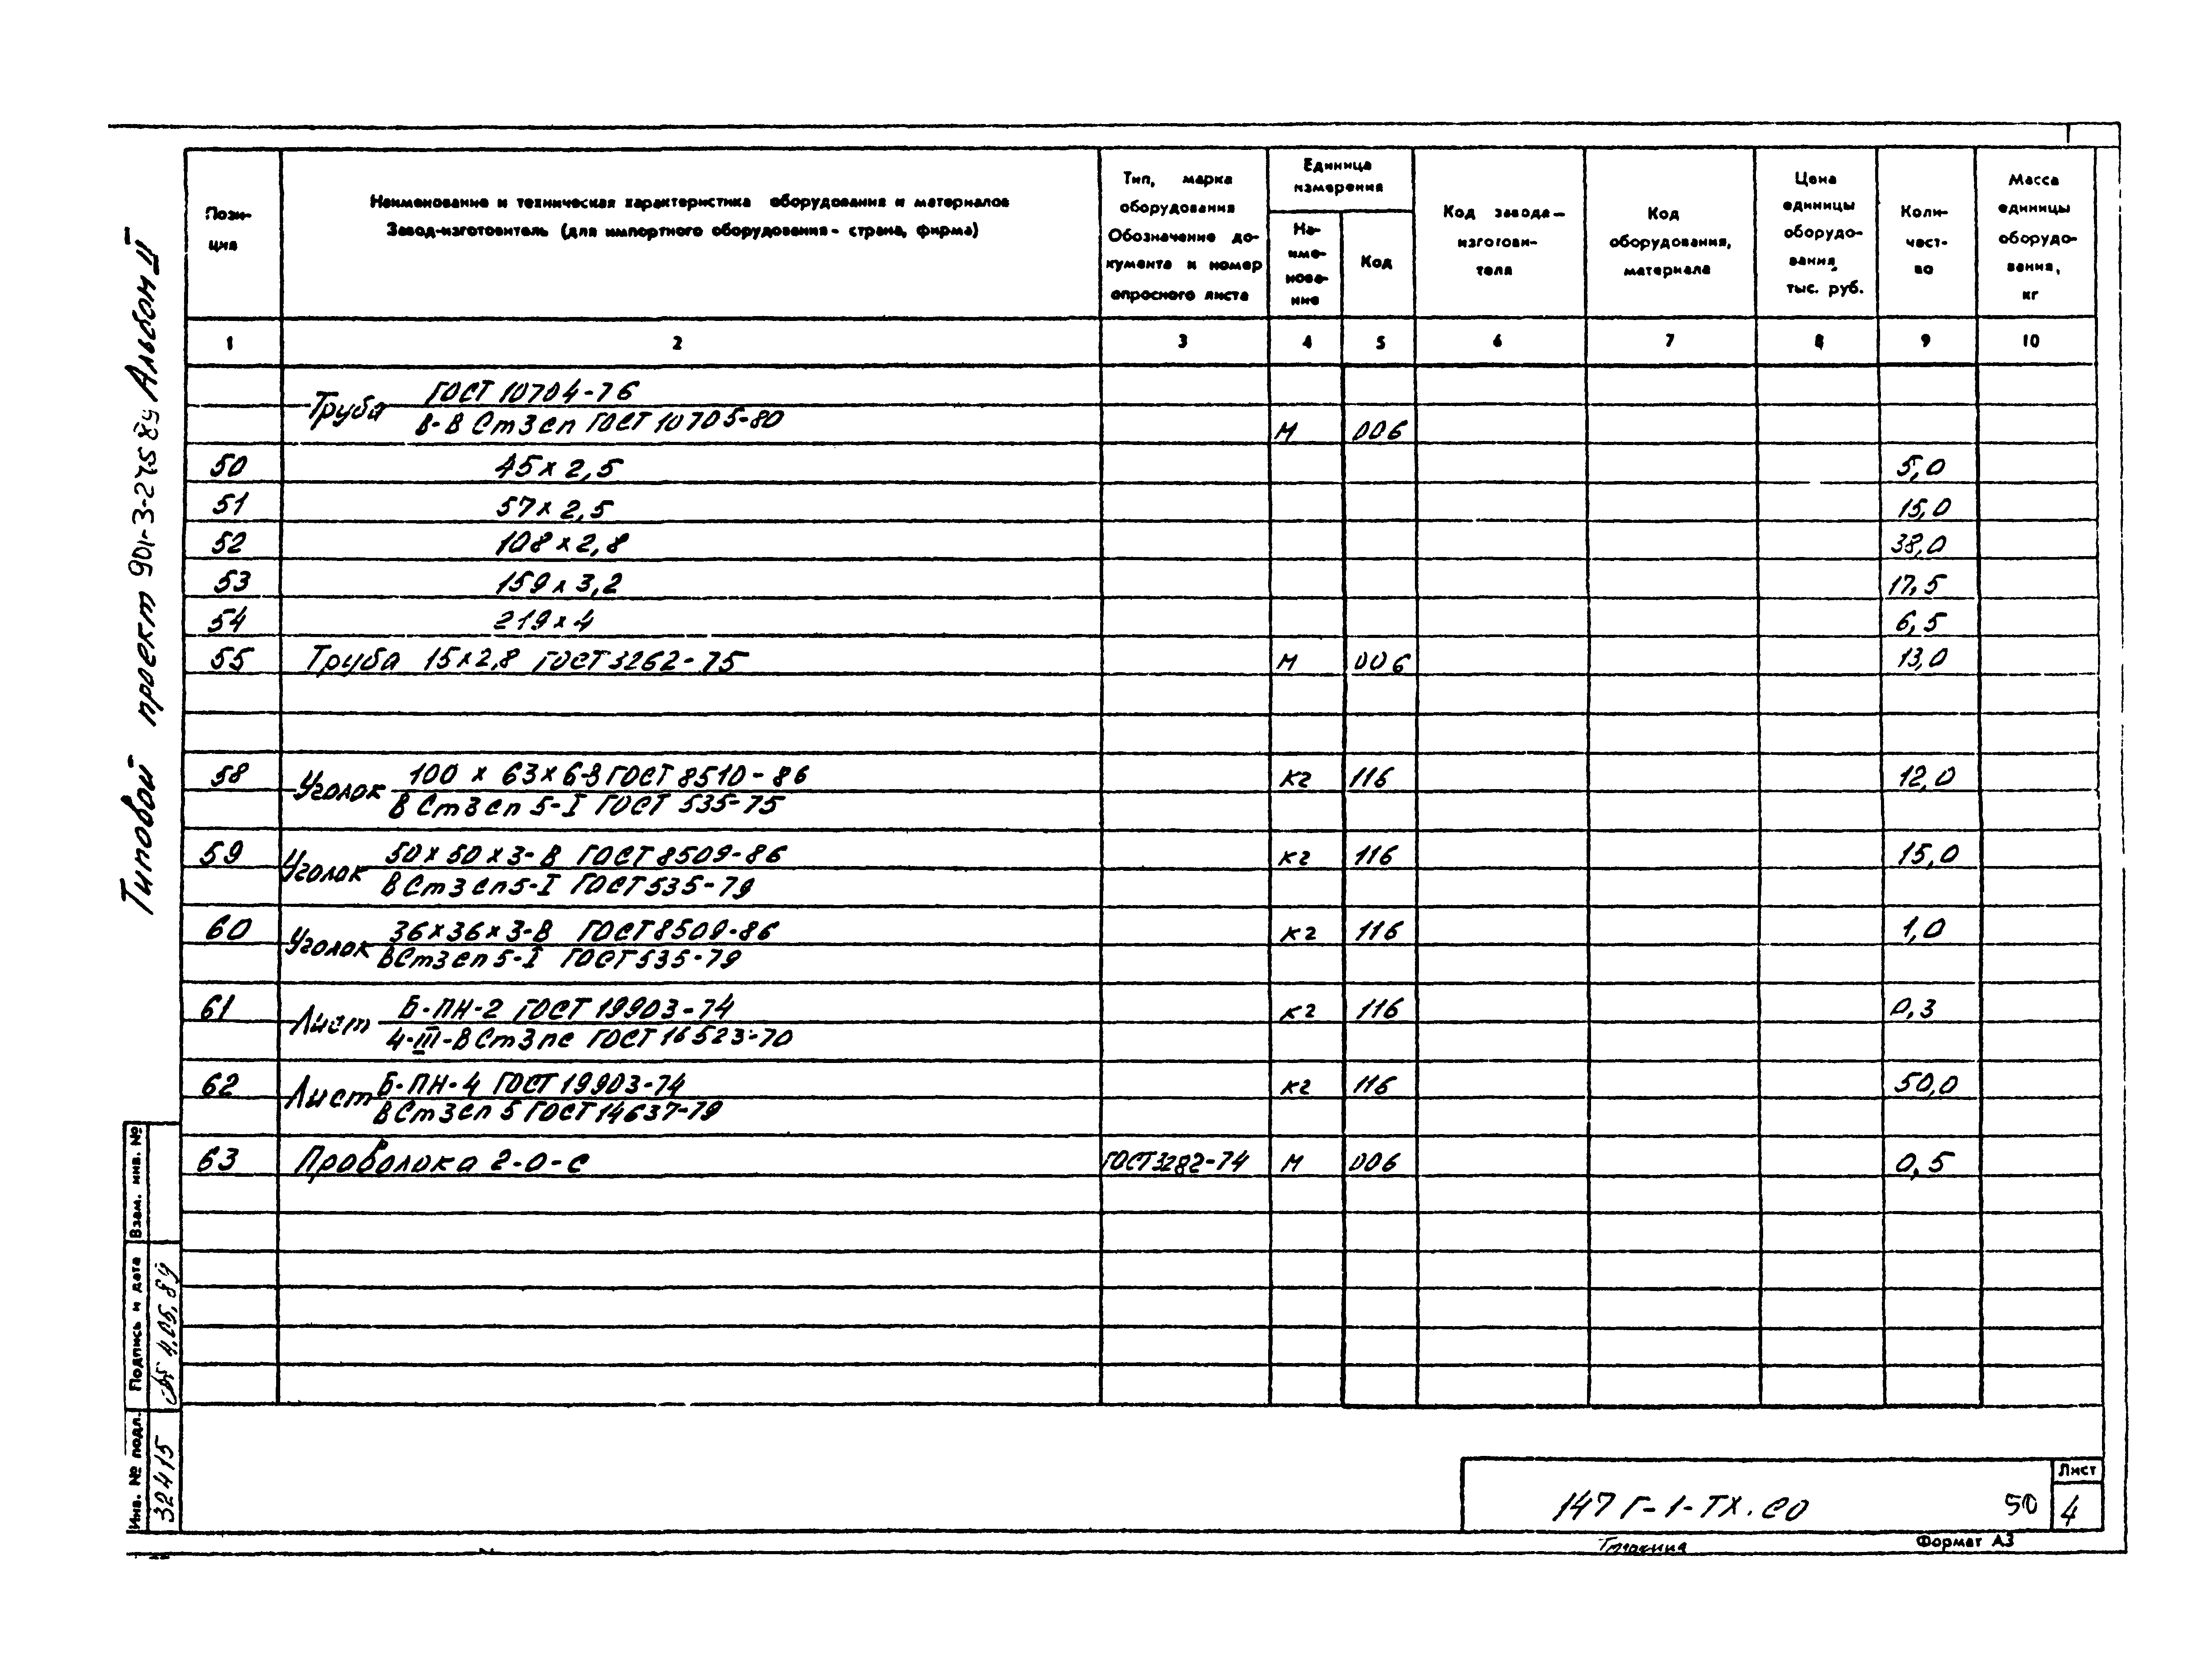 Типовой проект 901-3-275.89 Альбом II
Пози-
ция
Наименование и техническая характеристика оборудования и материалов
Завод-изготовитель (для импортного оборудования - страна, фирма)
Тип, марка
оборудования
Обозначение до-
кумента и номер
опросного листа
Единица
измерения
На-
име-
нова-
ние
Код
Код завода-
изготови-
теля
Код
оборудования,
материала
Цена
единицы
оборудо-
вания,
тыс. руб.
Коли-
чест-
во
Масса
единицы
оборудо-
вания,
кг
1 2 3 4 5 6 7 8 9 10
Труба ГОСТ 10704-76
В-В Ст3сп ГОСТ 10705-80 м 006
50 45х2,5 5,0
51 57х2,5 15,0
52 108х2,8 38,0
53 159х3,2 17,5
54 219х4 6,5
55 Труба 15х2,8 ГОСТ 3262-75 м 006 13,0
58 Уголок 100 х 63х6-В ГОСТ 8510-86 кг 116 12,0
ВСт3сп 5-I ГОСТ 535-75
59 Уголок 50х50х3-В ГОСТ 8509-86 кг 116 15,0
ВСт3сп5-I ГОСТ 535-79
60 Уголок 36х36х3-В ГОСТ 8509-86 кг 116 1,0
ВСт3сп5-I ГОСТ 535-79
61 Лист Б-ПН-2 ГОСТ 19903-74 кг 116 0,3
4-III-ВСт3пс ГОСТ 16523-70
62 Лист Б-ПН-4 ГОСТ 19903-74 кг 116 50,0
ВСт3сп 5 ГОСТ 14637-79
63 Проволока 2-0-С ГОСТ 3282-74 м 006 0,5
Взам. инв. №
Подпись и дата
4.05.89
Инв. № подл.
32415
147 Г-1-ТХ.СО
50
Лист
4
Формат А3